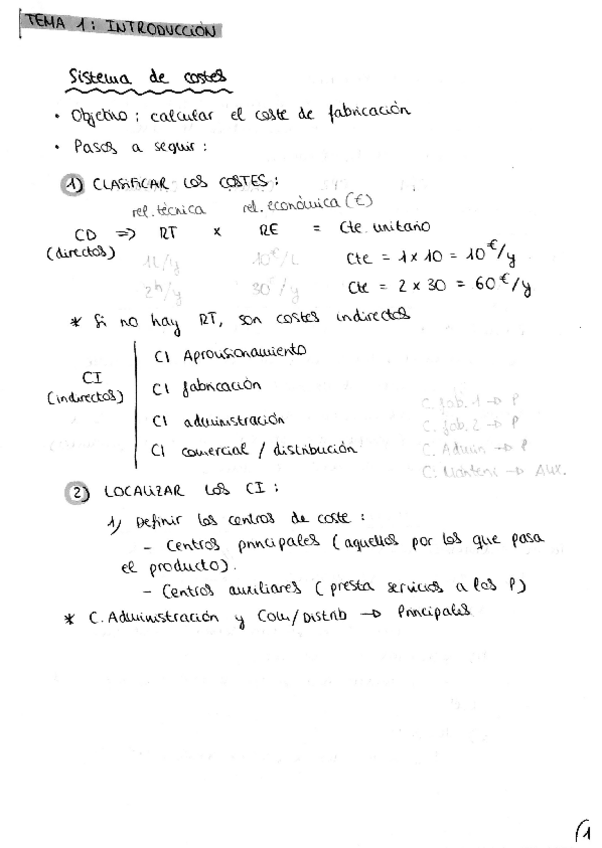 TEMA 1: INTRODUCCIÓN
Sistema de costes
• Objetivo: calcular el coste de fabricación
• Pasos a seguir:
1) CLASIFICAR LOS COSTES:
rel. técnica rel. económica (€)
CD => RT x RE = Cte. unitario
(directos) 1L/y 10€/L Cte = 1 x 10 = 10 €/y
2h/y 30€/y Cte = 2 x 30 = 60 €/y
* Si no hay RT, son costes indirectos
CI Aprovisionamiento
CI CI fabricación
(indirectos)
CI administración
CI comercial / distribución
C. fab. 1 → P
C. fab. 2 → P
C. Admin → P
C. Manteni → AUX.
2) LOCALIZAR LOS CI:
1) Definir los centros de coste:
- Centros principales (aquellos por los que pasa
el producto).
- Centros auxiliares (presta servicios a los P)
* C. Administración y Com/Distrib → Principales
1